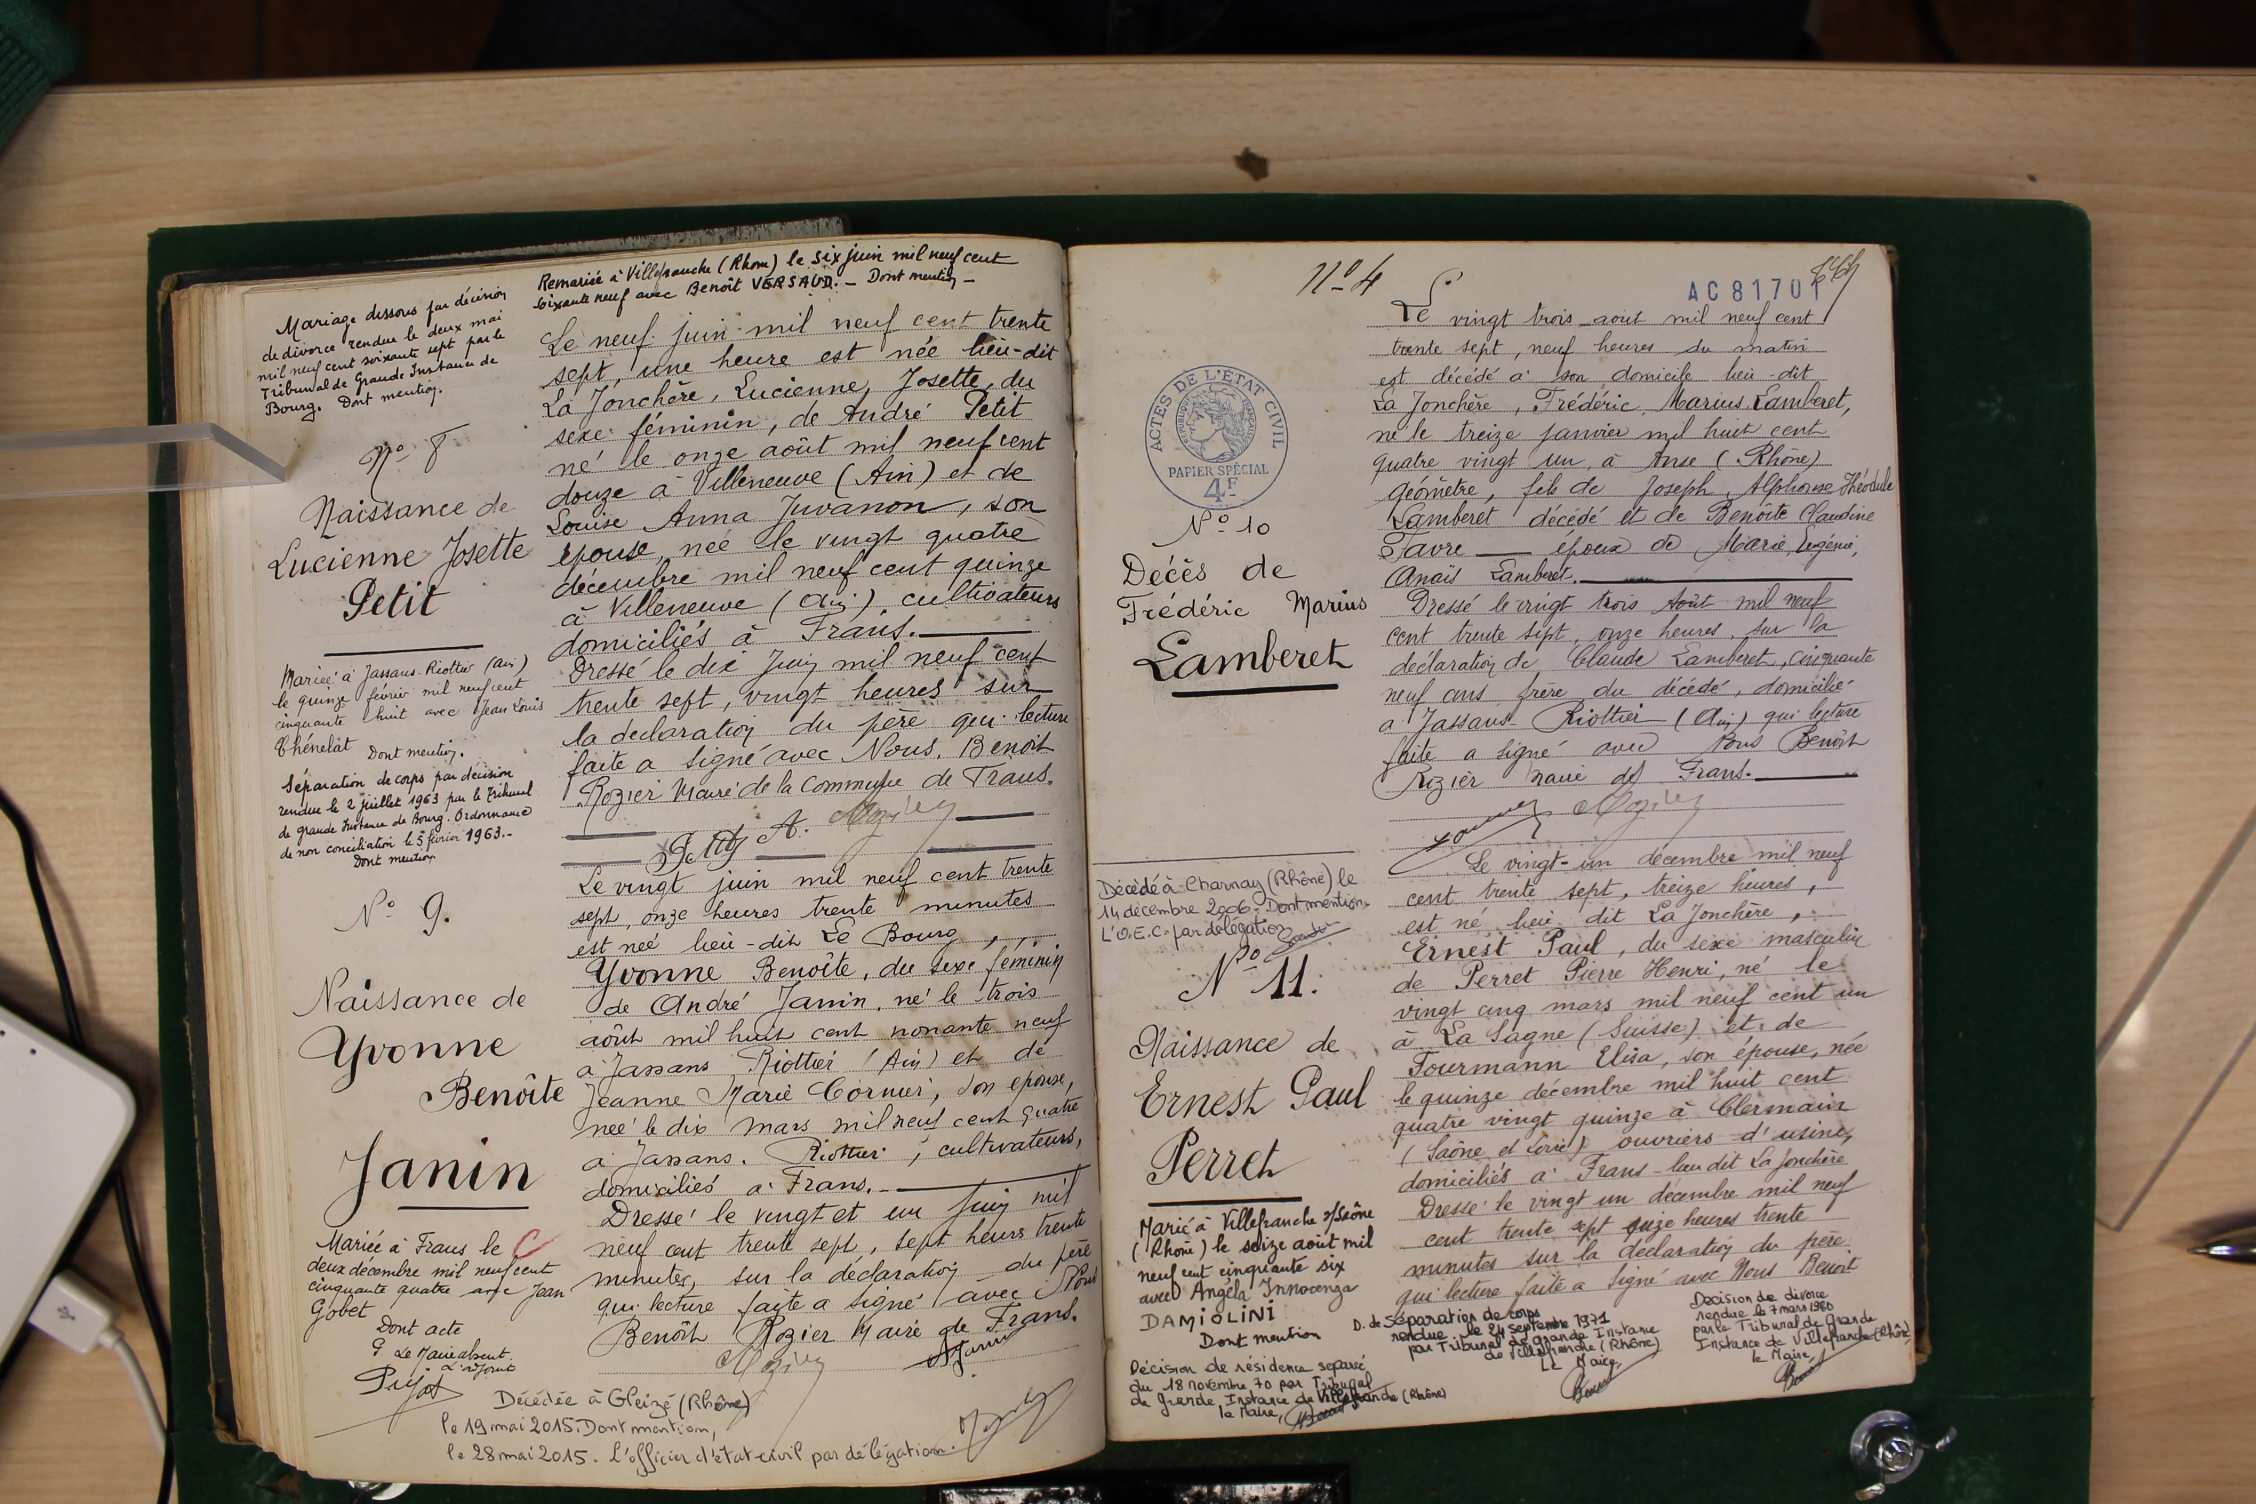 Remariée à Villefranche (Rhône) le six juin mil neuf cent
soixante neuf avec Benoît VERSAUD. - Dont mention -
Mariage dissous par décision
de divorce rendue le deux mai
mil neuf cent soixante sept par le
Tribunal de Grande Instance de
Bourg. Dont mention.
N° 8
Naissance de
Lucienne Josette
Petit
Mariée à Jassans-Riottier (Ain)
le quinze février mil neuf cent
cinquante huit avec Jean Louis
Thénelat Dont mention.
Séparation de corps par décision
rendue le 2 juillet 1963 par le Tribunal
de grande Instance de Bourg. Ordonnance
de non conciliation le 5 février 1963.-
Dont mention
Le neuf juin mil neuf cent trente
sept, une heure est née lieu-dit
La Jonchère, Lucienne, Josette, du
sexe féminin, de André Petit
né le onze août mil neuf cent
douze à Villeneuve (Ain) et de
Louise Anna Juvanon, son
épouse, née le vingt quatre
décembre mil neuf cent quinze
à Villeneuve (Ain), cultivateurs
domiciliés à Frans.
Dressé le dix Juin mil neuf cent
trente sept, vingt heures sur
la déclaration du père qui lecture
faite a signé avec Nous, Benoit
Rozier Maire de la Commune de Frans.
Petit A. Rozier
N° 9.
Naissance de
Yvonne
Benoîte
Janin
Mariée à Frans le C
deux décembre mil neuf cent
cinquante quatre avec Jean
Gobet
Dont acte
Le Maire absent
L'adjoint
Le vingt juin mil neuf cent trente
sept, onze heures trente minutes
est née lieu-dit Le Bourg,
Yvonne Benoîte, du sexe féminin
de André Janin, né le trois
août mil huit cent nonante neuf
à Jassans Riottier (Ain) et de
Jeanne Marie Cornier, son épouse,
née le dix mars mil neuf cent quatre
à Jassans-Riottier, cultivateurs,
domiciliés à Frans.
Dressé le vingt et un Juin mil
neuf cent trente sept, sept heures trente
minutes, sur la déclaration du père
qui lecture faite a signé avec Nous
Benoît Rozier Maire de Frans.
Rozier A Janin
Décédée à Gleizé (Rhône)
le 19 mai 2015. Dont mention,
le 28 mai 2015. L'officier d'état-civil par délégation.
N° 4
AC 81701
ACTES DE L'ÉTAT CIVIL
RÉPUBLIQUE FRANÇAISE
PAPIER SPÉCIAL
4F
N° 10
Décès de
Frédéric Marius
Lamberet
Le vingt trois août mil neuf cent
trente sept, neuf heures du matin
est décédé à son domicile lieu-dit
La Jonchère, Frédéric, Marius Lamberet,
né le treize janvier mil huit cent
quatre vingt un, à Anse (Rhône)
géomètre, fils de Joseph, Alphonse Théodule
Lamberet décédé et de Benoîte Claudine
Favre époux de Marie, Eugénie,
Anaïs Lamberet.
Dressé le vingt trois Août mil neuf
cent trente sept, onze heures, sur la
déclaration de Claude Lamberet, cinquante
neuf ans frère du décédé, domicilié
à Jassans-Riottier (Ain) qui lecture
faite a signé avec Nous Benoît
Rozier Maire de Frans.
Rozier
Décédé à Charnay (Rhône) le
14 décembre 2006. Dont mention.
L'O.E.C. par délégation
N° 11.
Naissance de
Ernest Paul
Perret
Marié à Villefranche s/Saône
(Rhône) le seize août mil
neuf cent cinquante six
avec Angéla Innocenza
DAMIOLINI
Dont mention
Décision de résidence séparée
du 18 novembre 70 par Tribunal
de Grande Instance de Villefranche (Rhône)
le Maire,
Le vingt-un décembre mil neuf
cent trente sept, treize heures,
est né, lieu dit La Jonchère,
Ernest Paul, du sexe masculin
de Perret Pierre Henri, né le
vingt cinq mars mil neuf cent un
à La Sagne (Suisse) et de
Fourmann Elisa, son épouse, née
le quinze décembre mil huit cent
quatre vingt quinze à Clermain
(Saône et Loire) ouvriers d'usine,
domiciliés à Frans - lieu dit La Jonchère
Dressé le vingt un décembre mil neuf
cent trente sept quinze heures trente
minutes sur la déclaration du père
qui lecture faite a signé avec Nous Benoit
D. de Séparation de corps
rendue le 24 septembre 1971
par Tribunal de grande Instance
de Villefranche (Rhône)
Le Maire,
Décision de divorce
rendue le 7 mars 1980
par le Tribunal de Grande
Instance de Villefranche (Rhône)
le Maire,